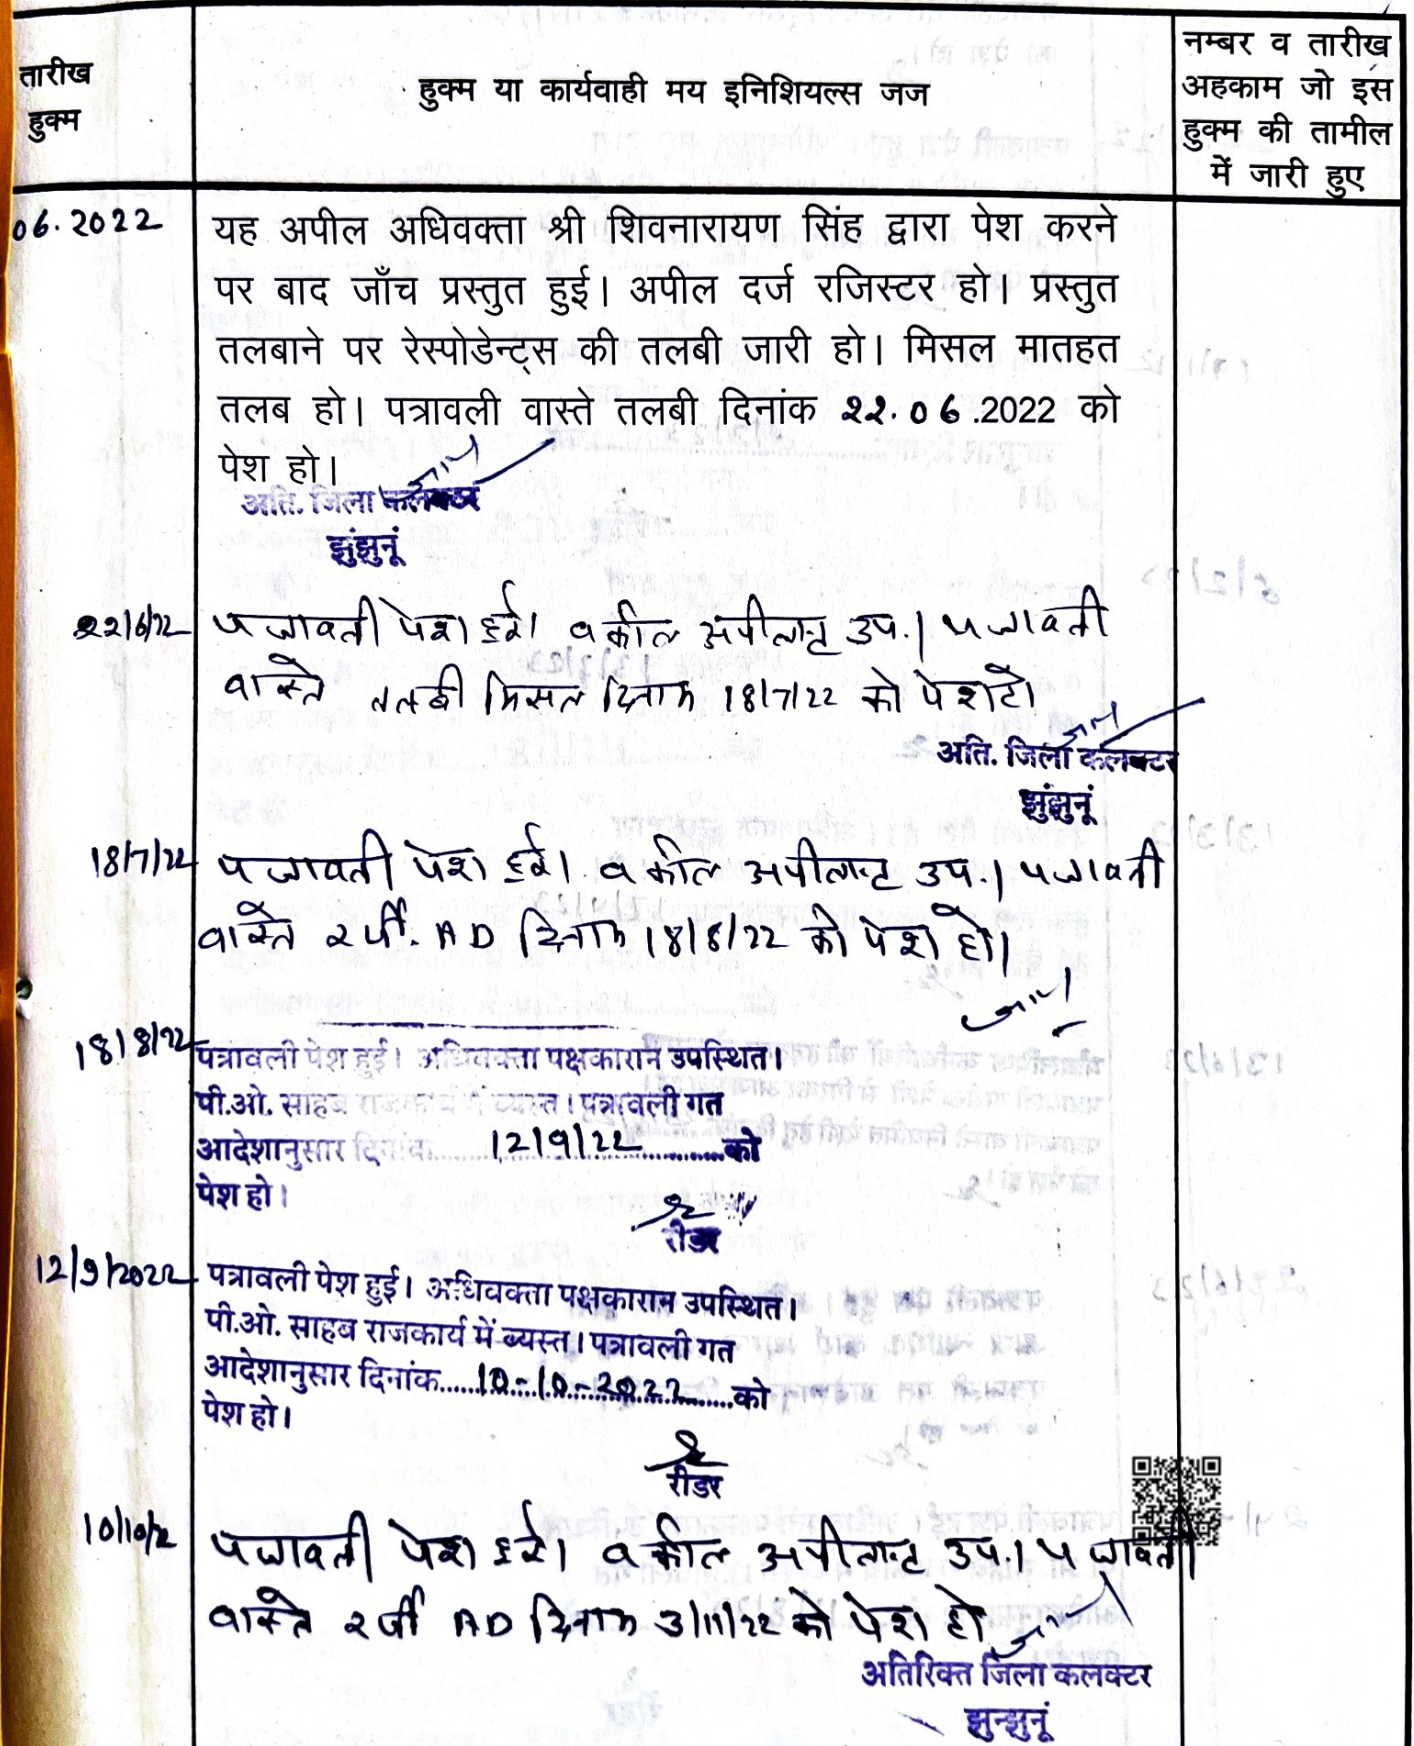 तारीख
हुक्म
हुक्म या कार्यवाही मय इनिशियल्स जज
नम्बर व तारीख
अहकाम जो इस
हुक्म की तामील
में जारी हुए
06.2022
यह अपील अधिवक्ता श्री शिवनारायण सिंह द्वारा पेश करने
पर बाद जाँच प्रस्तुत हुई। अपील दर्ज रजिस्टर हो। प्रस्तुत
तलबाने पर रेस्पोडेन्ट्स की तलबी जारी हो। मिसल मातहत
तलब हो। पत्रावली वास्ते तलबी दिनांक २२.06.2022 को
पेश हो।
अति. जिला कलक्टर
झुंझुनूं
२२/6/22 पत्रावली पेश हुई। वकील अपीलान्ट उप.। पत्रावली
वास्ते तलबी मिसल दिनांक 18/7/22 को पेश हो।
अति. जिला कलक्टर
झुंझुनूं
18/7/22 पत्रावली पेश हुई। वकील अपीलान्ट उप.। पत्रावली
वास्ते रजी. AD दिनांक 18/8/22 को पेश हो।
18/8/22 पत्रावली पेश हुई। अधिवक्ता पक्षकारान उपस्थित।
पी.ओ. साहब राजकार्य में व्यस्त। पत्रावली गत
आदेशानुसार दिनांक......12/9/22......को
पेश हो।
रीडर
12/9/2022 पत्रावली पेश हुई। अधिवक्ता पक्षकारान उपस्थित।
पी.ओ. साहब राजकार्य में व्यस्त। पत्रावली गत
आदेशानुसार दिनांक......10-10-2022......को
पेश हो।
रीडर
10/10/2 पत्रावली पेश हुई। वकील अपीलान्ट उप.। पत्रावली
वास्ते रजी AD दिनांक 3/11/22 को पेश हो
अतिरिक्त जिला कलक्टर
झुन्झुनूं